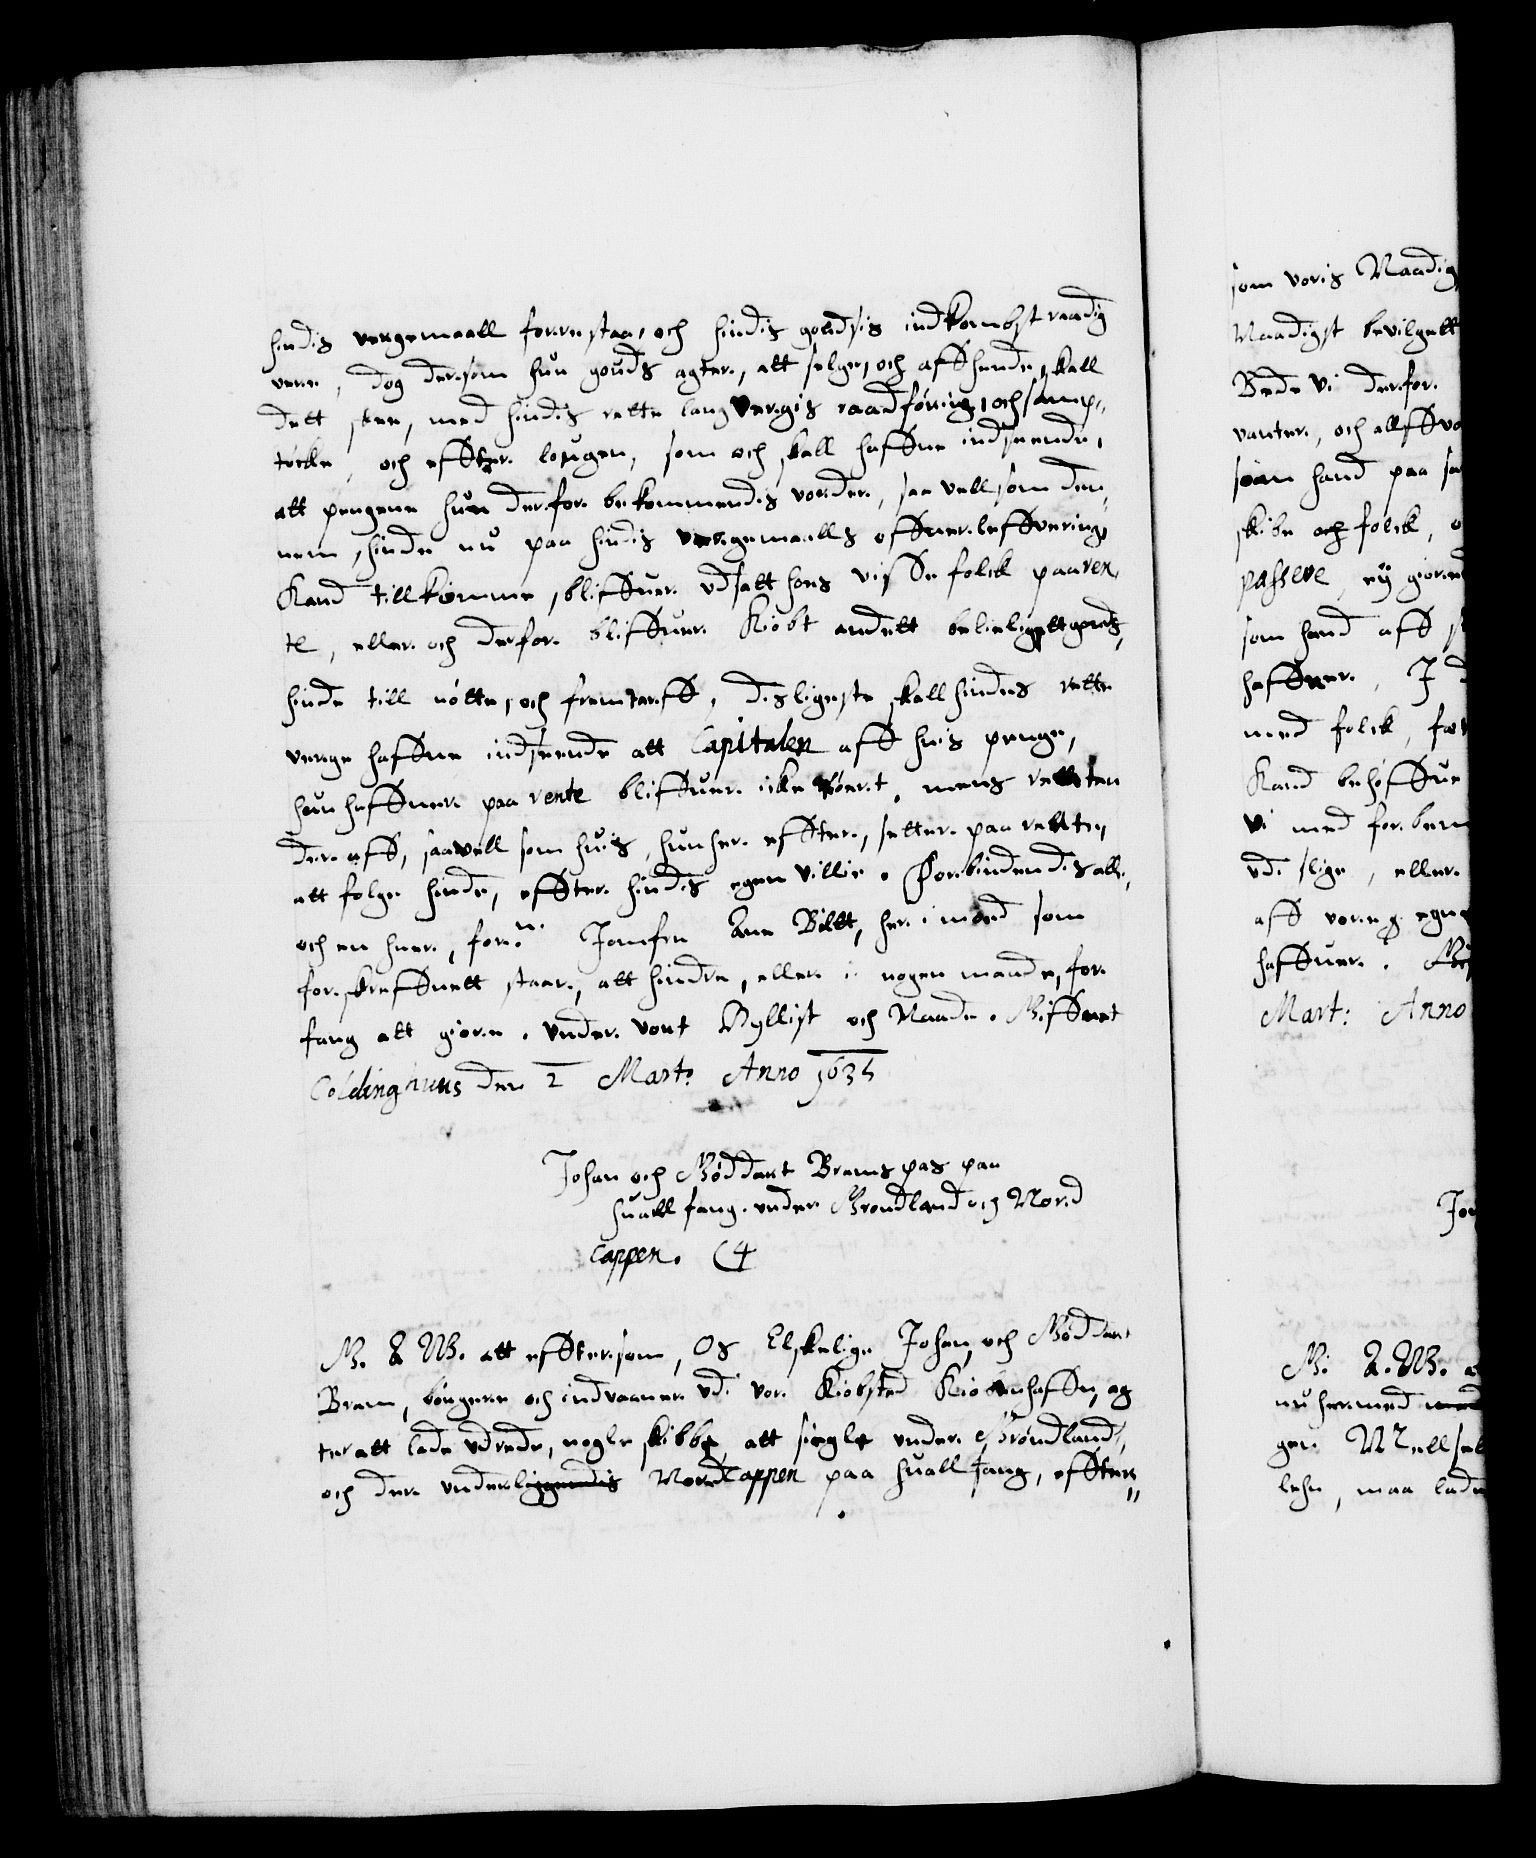 hindis vergemaall forrestaa, och hindis godsis indkombst raadig
vere, dog dersom hun gouds agter, att selge, och affhende, skall
dett skee, med hindis rette laugvergis raadføring, och samp¬
tøcke, och effter lougen, som och skall haffue indseende,
att pengene hun derfor bekommendis vorder, saa vell som den¬
nem, hinde nu paa hindis vergemaalls offuerleffvering
Kand tillkomme, bliffuer udsatt hoes visse folck paa ren¬
te, eller och derfor bliffuer Kiøbt andett beleiligett gouds,
hinde till nøtte, och fremtarff, disligeste skall hindes rette
verge haffue indseende att Capitalen aff huis penge,
hun haffuer paa rente bliffuer icke rørt, mens renten
der aff, saavell som huis, hun her effter, setter paa rente,
att følge hinde, effter hindis egen villie. Forbindendis alle,
och en huer, forne Jomfru Ane Bildt, her imod som
forskreffuett staar, att hindre, eller i nogen maade, for¬
fang att giøre. Under vort Hyllist och Naade. Giffuet
Coldinghuus den 2 Mart: Anno 1636
Johan och Gøddert Brams pas paa
huall fang under Grøndland och Nord
Cappen.
G. A. W. att effttersom, Os Elskelige Johan, och Gøddert
Bram, borgere och indvaaner udi vor Kiøbsted Kiøbenhaffn, ag
ter att lade udrede, nogle skibbe, att siegle under Grøndland,
och der underliggendis Nordcappen paa huall fang, effter¬
som voris Naadig
Naadigst bevilgett
Bede vi derfor
vanter, och alle
som hand paa
skibe och folck,
passere, ey giøre
som hand aff
haffuer, I
med folck,
Kand behøffue
vi med for
udi slige, eller
aff vore egne
haffuer.
Mart: Anno
G. A. W. a
nu hermed
gen
lehn, maa lade